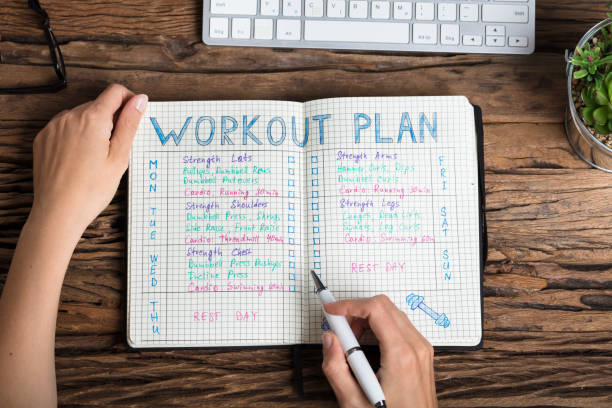 WORKOUT PLAN
MON
Strength Lats
Pullups, Dumbbell Rows
Dumbbell Pullovers
Cardio: Running 30min
TUE
Strength Shoulders
Dumbbell Press, Shrugs
Side Raise, Front Raise
Cardio: Treadmill 40min
WED
Strength Chest
Dumbbell Press Pushups
Incline Press
Cardio: Swimming 60min
THU
REST DAY
FRI
Strength Arms
Hammer Curls, Dips
Dumbbell Curls
Cardio: Running 30min
SAT
Strength Legs
Lunges, Dead Lifts
Squats, Leg Curls
Cardio: Swimming 60m
SUN
REST DAY